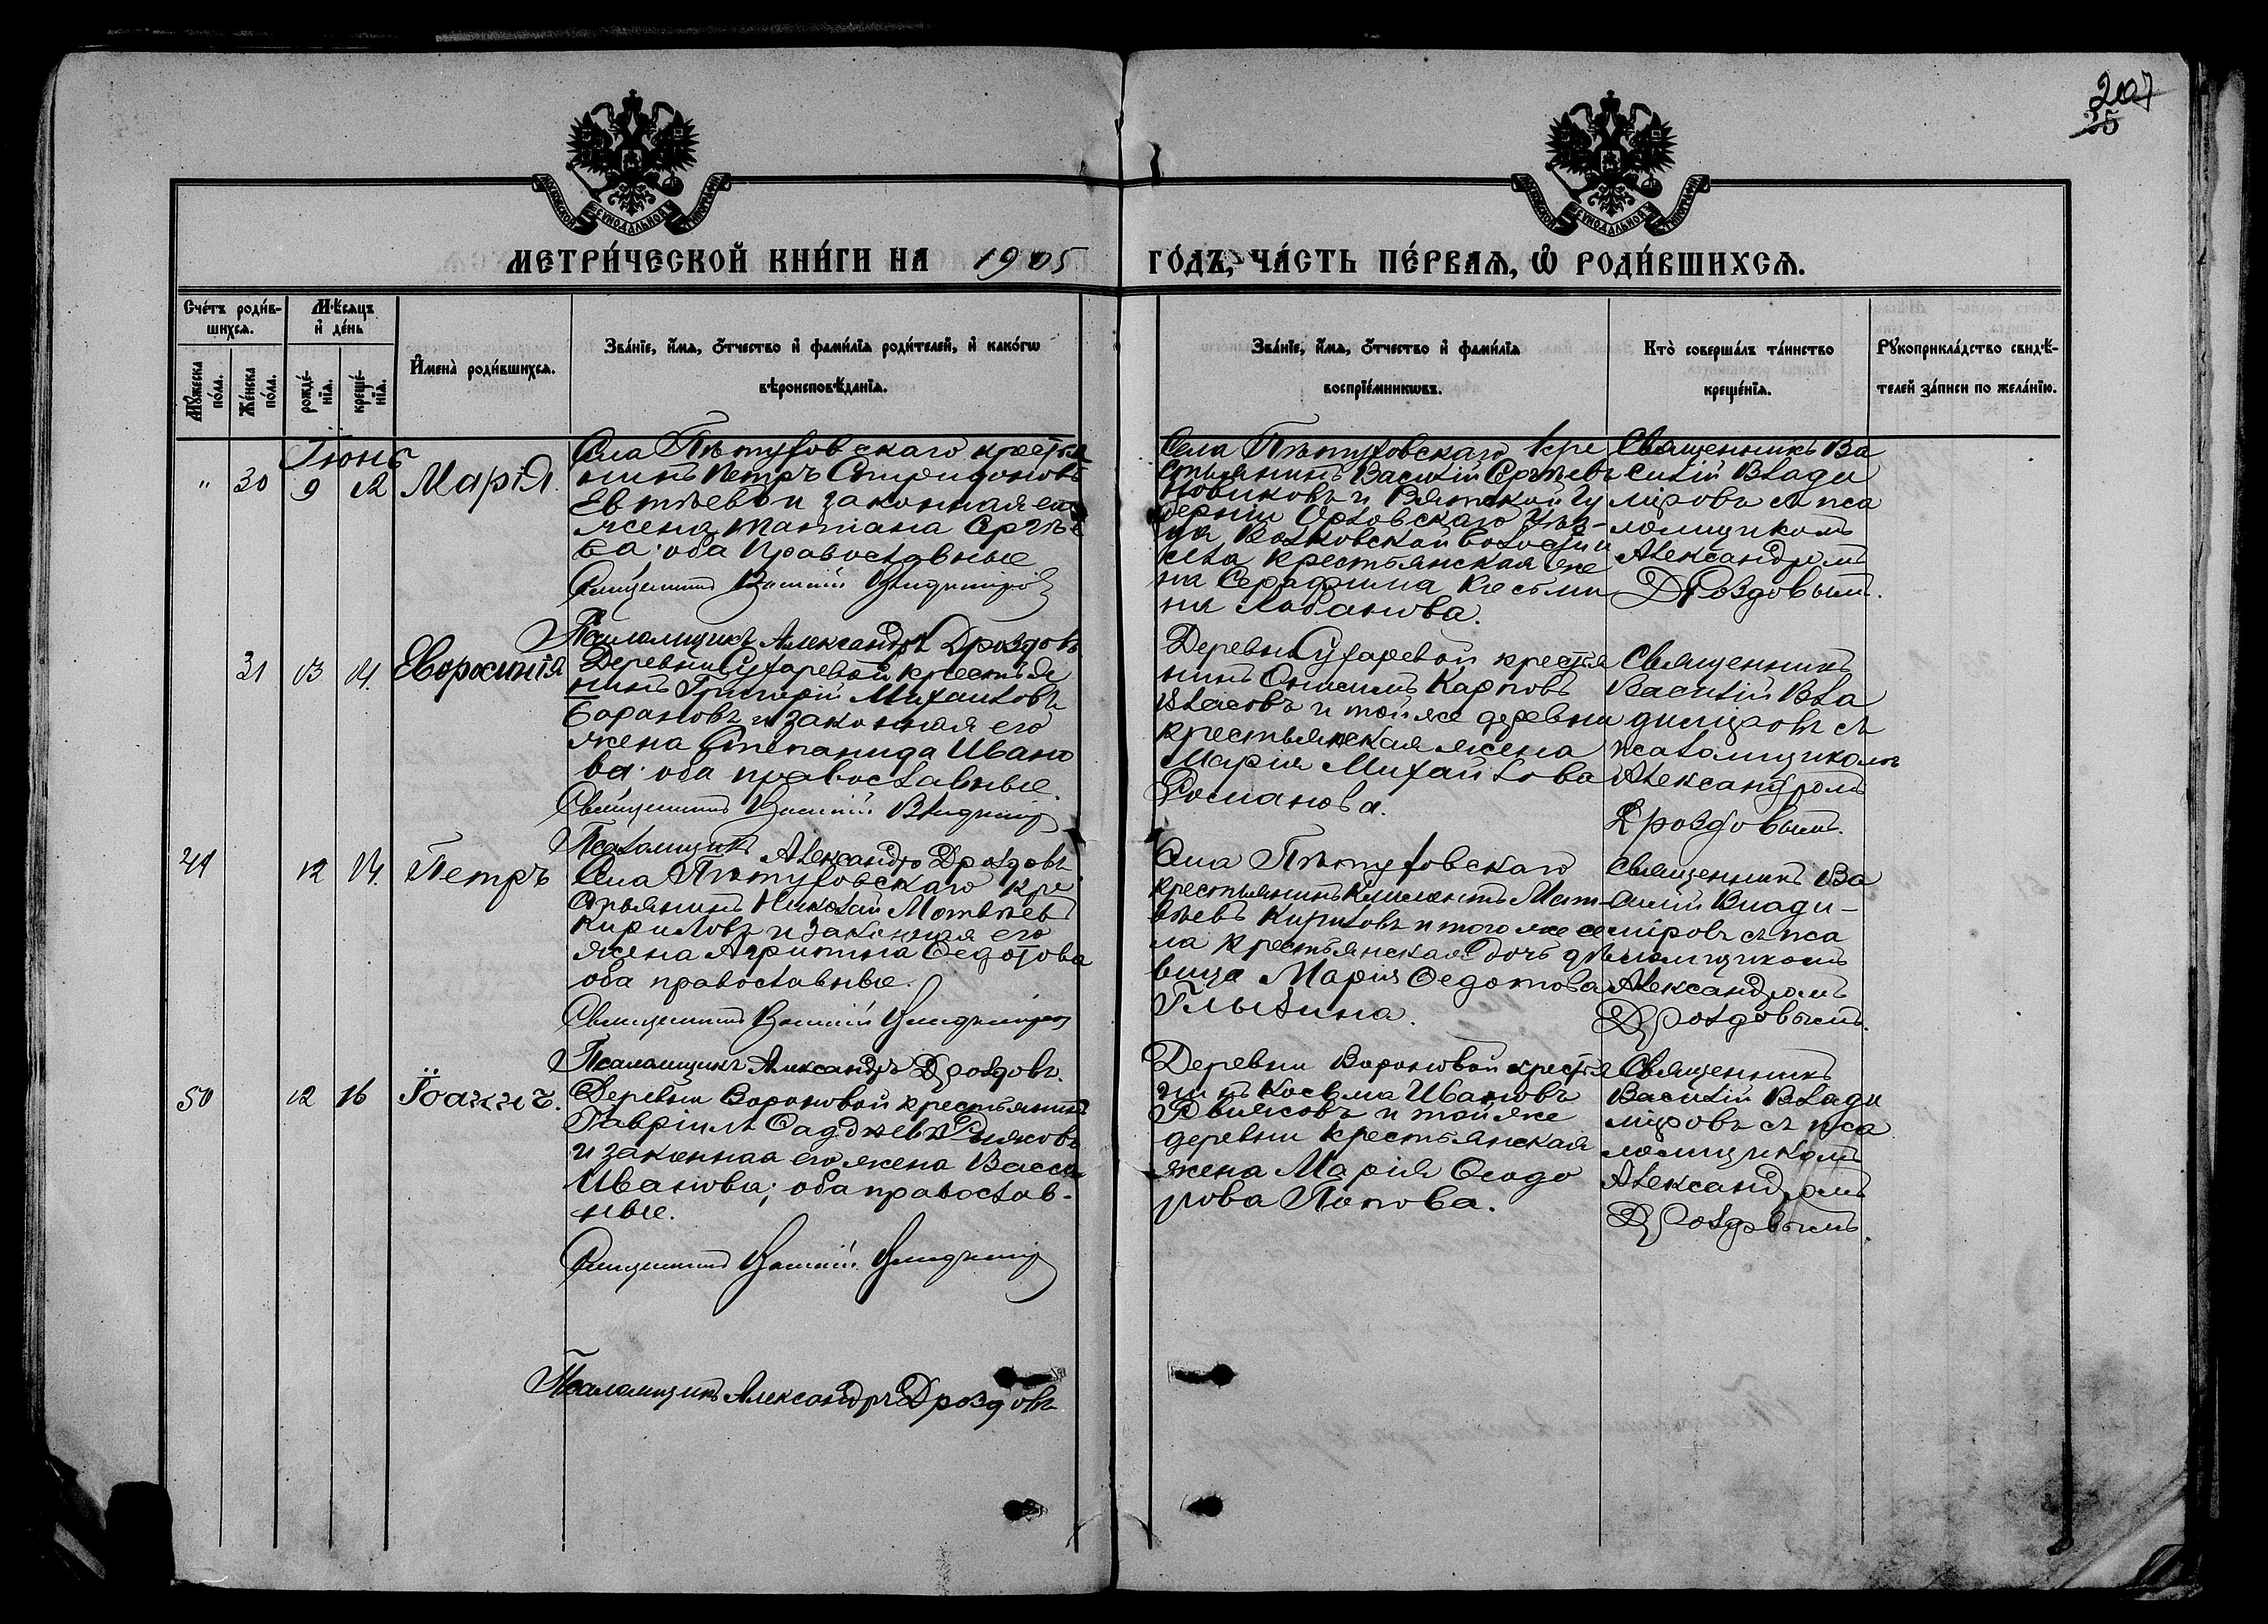 207
35
МЕТРИ́ЧЕСКОЙ КНИ́ГИ НА 1905
ГО́ДЪ, ЧА́СТЬ ПЕ́РВАЯ, Ѽ РОДИ́ВШИХСЯ.
Сче́тъ роди́в-
шихся.
Мѣ́сяцъ
и҆ де́нь
Мꙋ́жеска
по́ла.
Же́нска
по́ла.
рожде́-
нїя.
креще́-
нїя.
И҆мена̀ роди́вшихся.
Зва́нїе, и҆́мя, ѻ҆́тчество и҆ фами́лїя роди́телей, и҆ како́гѡ
вѣроисповѣ́данїя.
Зва́нїе, и҆́мя, ѻ҆́тчество и҆ фами́лїя
воспрїе́мникѡвъ.
Кто̀ соверша́лъ та́инство
креще́нїя.
Рꙋкоприкла́дство свидѣ́-
телей за́писи по жела́нїю.
Іюнь
" 30 9 12 Марія.
Села Пѣтуховскаго крестья
нинъ Петръ Спиридоновъ
Евтѣевъ и законная его
жена Татіана Сергѣе
ва: оба православные
Священникъ Василій Владиміров
Псаломщикъ Александръ Дроздовъ
Села Пѣтуховскаго кре
стьянинъ Василій Сергѣевъ
Новиковъ и Вятской Гу
берніи Орловскаго Уѣз-
да волости
крестьянская же
на Серафима Косьми
на Лобанова.
Священникъ Ва
силій Влади
міровъ съ пса
ломщикомъ
Александромъ
Дроздовымъ.
31 13 14. Евфросинія
Деревни Сухаревой крестья
нинъ Григорій Михаиловъ
Барановъ и законная его
жена Степанида Ивано
ва: оба православные.
Священникъ Василій Владимір
Псаломщикъ Александръ Дроздовъ
Деревни Сухаревой крестья
нинъ Онисимъ Карповъ
Власовъ и той же деревни
крестьянская жена
Марія Михайлова
Романова.
Священникъ
Василій Вла
диміровъ съ
псаломщикомъ
Александромъ
Дроздовымъ.
49 12 14. Петръ
Села Пѣтуховскаго кре
стьянинъ Николай Матвѣевъ
Кириловъ и законная его
жена Агрипина Ѳедотова
оба православные.
Священникъ Василій Владиміров
Псаломщикъ Александръ Дроздовъ.
Села Пѣтуховскаго
крестьянинъ Климентъ Мат-
вѣевъ Кириловъ и того же се
ла крестьянская дочь дѣ
вица Марія Ѳедотова
Глызина.
Священникъ Ва
силій Влади-
міровъ съ пса
ломщикомъ
Александромъ
Дроздовымъ.
50 12 16 Іоаннъ.
Деревни Вороновой крестьянинъ
Гавріилъ Ѳаддѣевъ
и законная его жена Васса
Иванова; оба православ-
ные.
Священникъ Василій Владимір
Псаломщикъ Александръ Дроздовъ
Деревни Вороновой крестья
нинъ Косьма Ивановъ
и той же
деревни крестьянская
жена Марія Ѳеодо
рова Попова.
Священникъ
Василій Влади
міровъ съ пса
ломщикомъ
Александромъ
Дроздовымъ.